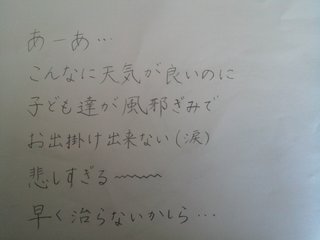 あーあ…
こんなに天気が良いのに
子ども達が風邪ぎみで
お出掛け出来ない(涙)
悲しすぎる〜〜〜
早く治らないかしら…